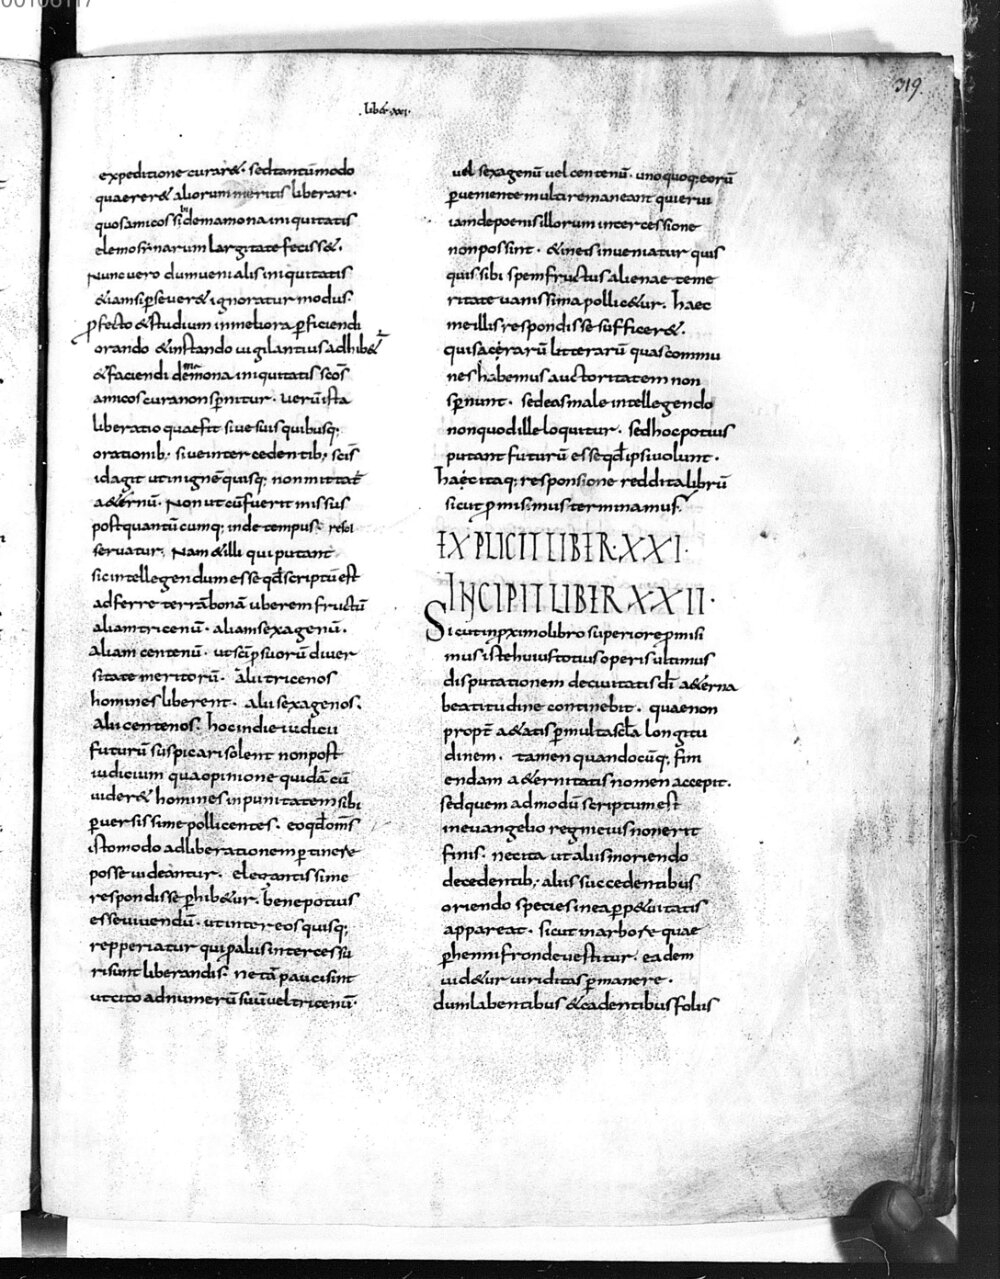 319.
.liber.xxi.
expeditione curar&. sed tantūmodo
quaerer& aliorum meritis liberari.
quos amicos sibi de mamona iniquitatis
elemosinarum largitate feciss&.
Nunc vero dum venialis iniquitatis
& iamsi persever& ignoratur modus.
profecto & studium in meliora proficiendi
orando & instando vigilantius adhib&
& faciendi de mamona iniquitatis scōs
amicos cura non spernitur. verū ista
liberatio quae fit sive suis quibusq;
orationib; sive intercedentib; scīs
id agit ut in ignē quisq; non mittat
a&ernū. Non ut cū fuerit missus
post quantūcumq; inde tempus
servatur. Nam & illi qui putant
sic intellegendum esse qd̄ scriptū est
adferre terrā bonā uberem fructū
aliam tricenū. aliam sexagenū.
aliam centenū. ut scī p suorū diver
sitate meritorū. alii tricenos
homines liberent. alii sexagenos.
alii centenos. hoc in die iudicii
futurū suspicari solent non post
iudicium qua opinione quidā cū
vider& homines inpunitatem sibi
perversissime pollicentes. eo qd̄ om̄s
isto modo ad liberationem pertinere
posse videantur. elegantissime
respondisse perhib&ur. bene potius
esse vivendū. ut inter eos quisq;
repperiatur qui p aliis intercessu
ri sunt liberandis. ne tā pauci sint
ut cito ad numerū suū vel tricenū.
vel sexagenū vel centenū. unoquoq; eorū
perveniente multi remaneant qui erui
iam de poenis illorum intercessione
non possint. & in eis inveniatur quis
quis sibi spem fructus alienae teme
ritate vanissima pollic&ur. haec
me illis respondisse suffecer&.
qui sacrarū litterarū quas commu
nes habemus auctoritatem non
spernunt. sed eas male intellegendo
non quod ille loquitur. sed hoc potius
putant futurū esse qd̄ ipsi volunt.
hac itaq; responsione reddita librū
sicut promisimus terminamus.
EXPLICIT LIBER. XXI.
INCIPIT LIBER XXII.
Sicut in proximo libro superiore promisi
mus iste huius totius operis ultimus
disputationem de civitatis dī a&erna
beatitudine continebit. quae non
propt̄ a&atis p multa scl̄a longitu
dinem. tamen quandocūq; fini
endam a&ernitatis nomen accepit.
sed quem admodū scriptum est
in evangelio regni eius non erit
finis. nec ita ut aliis moriendo
decedentib; aliis succedentibus
oriendo species in ea perp&uitatis
appareat. sicut in arbore quae
perhenni fronde vestitur. eadem
vid&ur viriditas permanere.
dum labentibus & cadentibus foliis